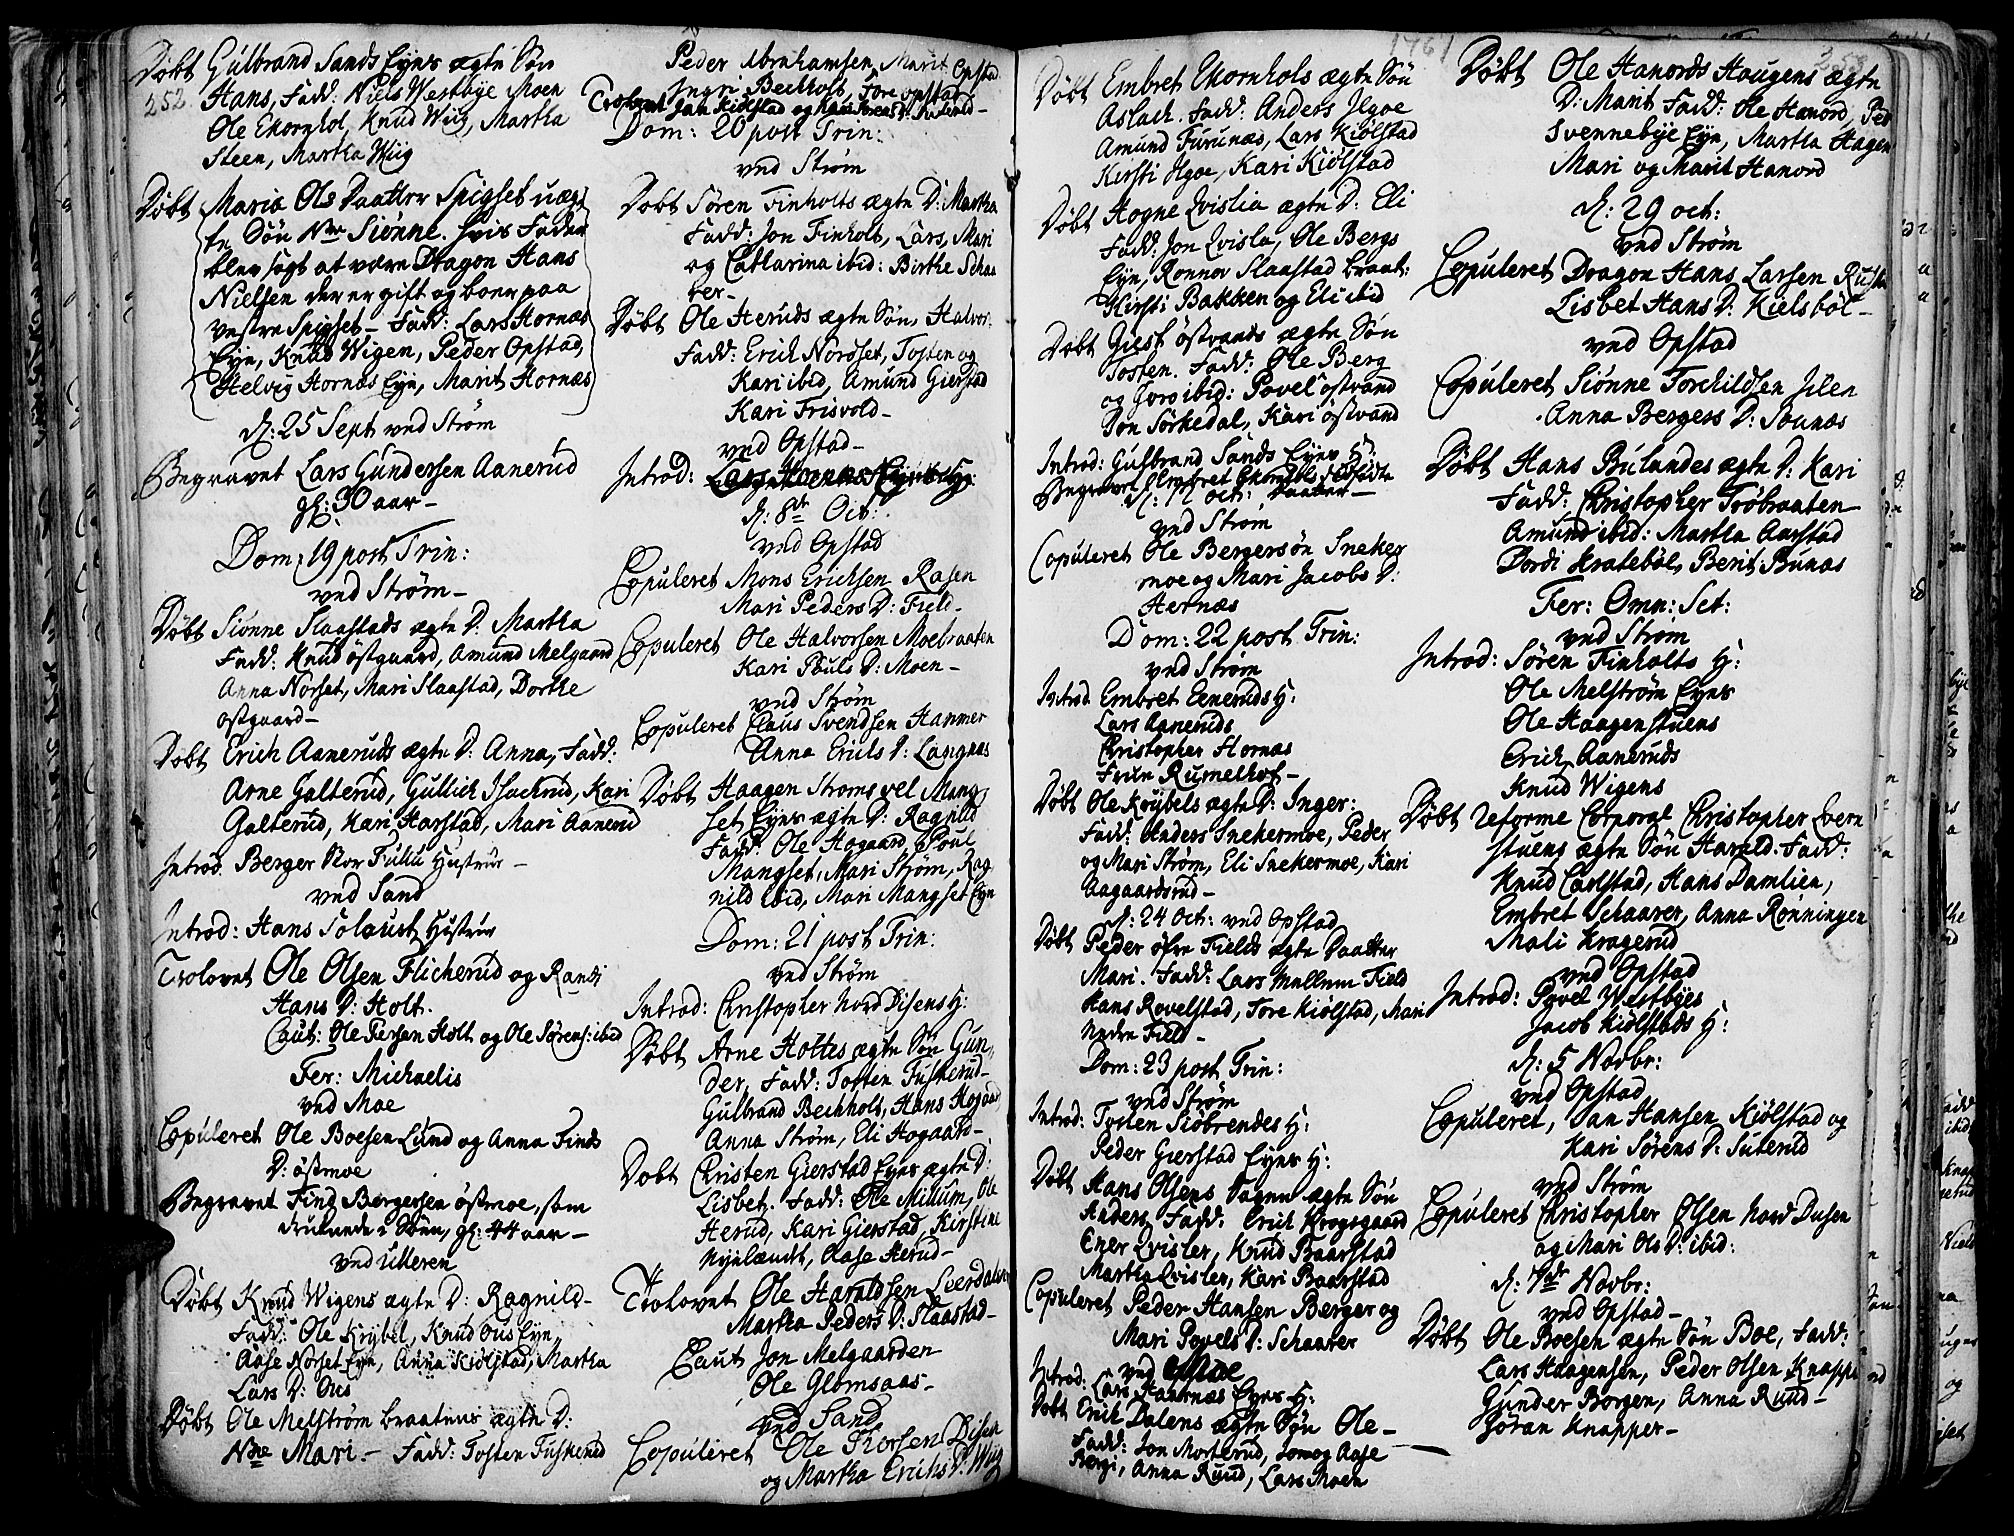 252.
Døbt Gulbrand Sands Eyes ægte Søn
Hans, Fadd: Niels Westbye Moen
Ole Ekornhol, Knud Wiig, Martha
Steen, Martha Wiig
Døbt Maria Ols Daatter Spigset uæg-
te Søn Nne Siønne. hvis Fader
blev sagt at være Dragon Hans
Nielsen der er gift og boer paa
vestre Spigset - Fadd: Lars Hornæs
Eyn, Knud Wigen, Peder Opstad,
Helvig Hornæs Eyn, Marit Hornæs
d: 25 Sept ved Strøm
Begravet Lars Gundersen Aanerud
gl: 30 aar -
Dom: 19 post Trin:
ved Strøm -
Døbt Siønne Slaastads ægte D: Martha
Fadd: Knud østgaard, Amund Melgaard
Anna Norset, Mari Slaastad, Dorthe
østgaard -
Døbt Erich Aaneruds ægte D: Anna, Fadd:
Arne Galterud, Gullich Isachrud, Kari
Galterud, Kari Harstad, Mari Aanerud
Introd. Berger Stor Hustrue -
ved Sand
Introd: Hans Hustrue
Trolovet Ole Olsen Flicherud og Randi
Hans D: Holt.
Caut: Ole Holt og Ole Sørens: ibid
Fer: Michaelis
ved Moe
Copuleret Ole Boesen Lund og Anna Finds
D: østmoe
Begravet Find Bergersen østmoe, som
druknede i Søen, gl: 44 aar -
ved Ulleren
Døbt Knud Wigens ægte D: Ragnild -
Fadd: Ole Krybel, Knud Ous Eyn
Aase Norset Eyn, Anna Kiølstad, Martha
Lars D: Ous
Døbt Ole Melstrøm braatens ægte D:
Nne Mari - Fadd: Tosten Fuskerud
Peder Abrahamsen, Marit Opstad
Ingri Bechholt, Tore opstad
Trolovet Jan Kiølstad og Kari
Dom: 20 post Trin:
ved Strøm
Døbt Søren Finholts ægte D: Martha
Fadd: Jon Finholt, Lars, Mari
og Catharina ibid: Birthe Schaa
rer -
Døbt Ole Heruds ægte Søn, Halvor.
Fadd: Erich Nordset, Tosten og
Kari ibid, Amund Gierstad
Kari Frisvold -
ved Opstad -
Introd: Lars Hornæs Eyes H:
d: 8de Oct:
ved Opstad
Copuleret Mons Erichsen Rasen
Mari Peders D: Field -
Copuleret Ole Halvorsen Moebraaten
Kari Pouls D: Moen -
ved Strøm
Copuleret Claus Svendsen Hammer
Anna Erichs D: Langnæs
Døbt Haagen Strømsvel Mang-
set Eyes ægte D: Ragnild
Fadd: Ole Hogaard, Poul
Mangset, Mari Strøm, Rag
nild ibid, Mari Mangset Eyn
Dom: 21 post Trin:
ved Strøm
Introd: Christopher Nord Disens H:
Døbt Arne Holtes ægte Søn Gun-
der, Fadd: Tosten Fuskerud -
Gulbrand Bechholt, Hans Hogaard
Anna Strøm, Eli Hogaard -
Døbt Christen Gierstad Eyes ægte D:
Lisbet. Fadd: Ole Millum, Ole
Herud, Kari Gierstad, Kirstine
Nyelændt, Aase Herud -
Trolovet Ole Haraldsen Leerdalen
Martha Peders D: Slaastad -
Caut Jon Melgaarden
Ole Glomsaas -
ved Sand
Copuleret Ole Thorsen Disen
og Martha Erichs D: Wiig
1761
Døbt Embret Ekornhols ægte Søn
Aslach. Fadd: Anders Jgoe
Amund Furunæs, Lars Kiølstad
Kersti Jgoe, Kari Kiølstad
Døbt Hogne Qvislia ægte D: Eli
Fadd: Jon Qvisla, Ole Bergs
Eyn, Ronnor Slaastad braat:
Kirsti Bakken og Eli ibid
Døbt Giest østvands ægte Søn
Tosten. Fadd: Ole Berg
og Goro ibid: Povel østvand
Jon Sørkedal, Kari østvand
Introd: Gulbrand Sands Eyes H:
Begravet Embret dødfødte
d: 12 oct: Daatter -
ved Strøm
Copuleret Ole Bergersøn Sneker
moe og Mari Jacobs D:
Hernæs
Dom: 22 post Trin:
ved Strøm
Introd. Embret Eeneruds H:
Lars Aaneruds
Christopher Hornæs
Rumelhof -
Døbt Ole Krybels ægte D: Inger:
Fadd: Anders Snekermoe, Peder
og Mari Strøm, Eli Snekermoe, Kari
Aagaardsrud -
d: 24 Oct: ved Opstad
Døbt Peder øfre Fields ægte Daatter
Mari. Fadd: Lars mellem Field
Hans Rovelstad, Tore Kiølstad, Mari
Nedre Field -
Dom: 23 post Trin:
ved Strøm
Introd: Tosten Siøbrendes H:
Peder Gierstad Eyes H:
Døbt Hans Olsens Sagen ægte Søn
Anders Fadd: Erich Krogsgaard
Ener Qvisler, Knud Baarstad
Martha Qvisler, Kari Baarstad
Copuleret Peder Hansen Berger og
Mari Povels D: Schaarer
ved
Introd. Lars Haarnæs Eyes H:
Døbt Erich Dalens ægte Søn Ole -
Fadd: Jon Morterud, Jon og Aase
Bergi, Anna Ruud, Lars Moen
253
Døbt Ole Hanords Haugens ægte
D: Marit Fadd: Ole Hanord, Ped
Svennebye Eyn, Martha Hagen
Mari og Marit Hanord
d: 29 oct:
ved Strøm
Copuleret Dragon Hans Larsen
Lisbet Hans D: Kielsbøl -
ved Opstad
Copuleret Siønne Torchildsen Jilen
Anna Bergers D: Sounæs
Døbt Hans Bulandes ægte D: Kari
Fadd: Christopher Trøbraaten -
Amund ibid: Martha Aarstad
Dordi Kratebøl, Berit Bunæs
Fer: Omn: Set:
ved Strøm
Introd: Søren Finholts H:
Ole Melstrøm Eyes
Ole Haagenstuens
Erich Aaneruds
Knud Wigens
Døbt reforme Corporal Christopher Evern
stuens ægte Søn Harald. Fadd:
Knud Carlstad, Hans Damlien,
Embret Schaarer, Anna Rønningen
Mali Kragerud
ved Opstad
Introd: Povel Westbyes
Jacob Kiølstads H:
d: 5 Novbr:
ved Opstad
Copuleret, Jan Hansen Kiølstad og
Kari Sørens D: Suterud
ved Strøm
Copuleret Christopher Olsen Nord Dusen
og Mari Ols D: ibid:
d: 7de Novbr:
ved Opstad -
Døbt Ole Boesen ægte Søn Boe, Fadd:
Lars Haagensen, Peder Olsen Knappe
Gunder Borgen, Anna Ruud -
Gøran Knapper -